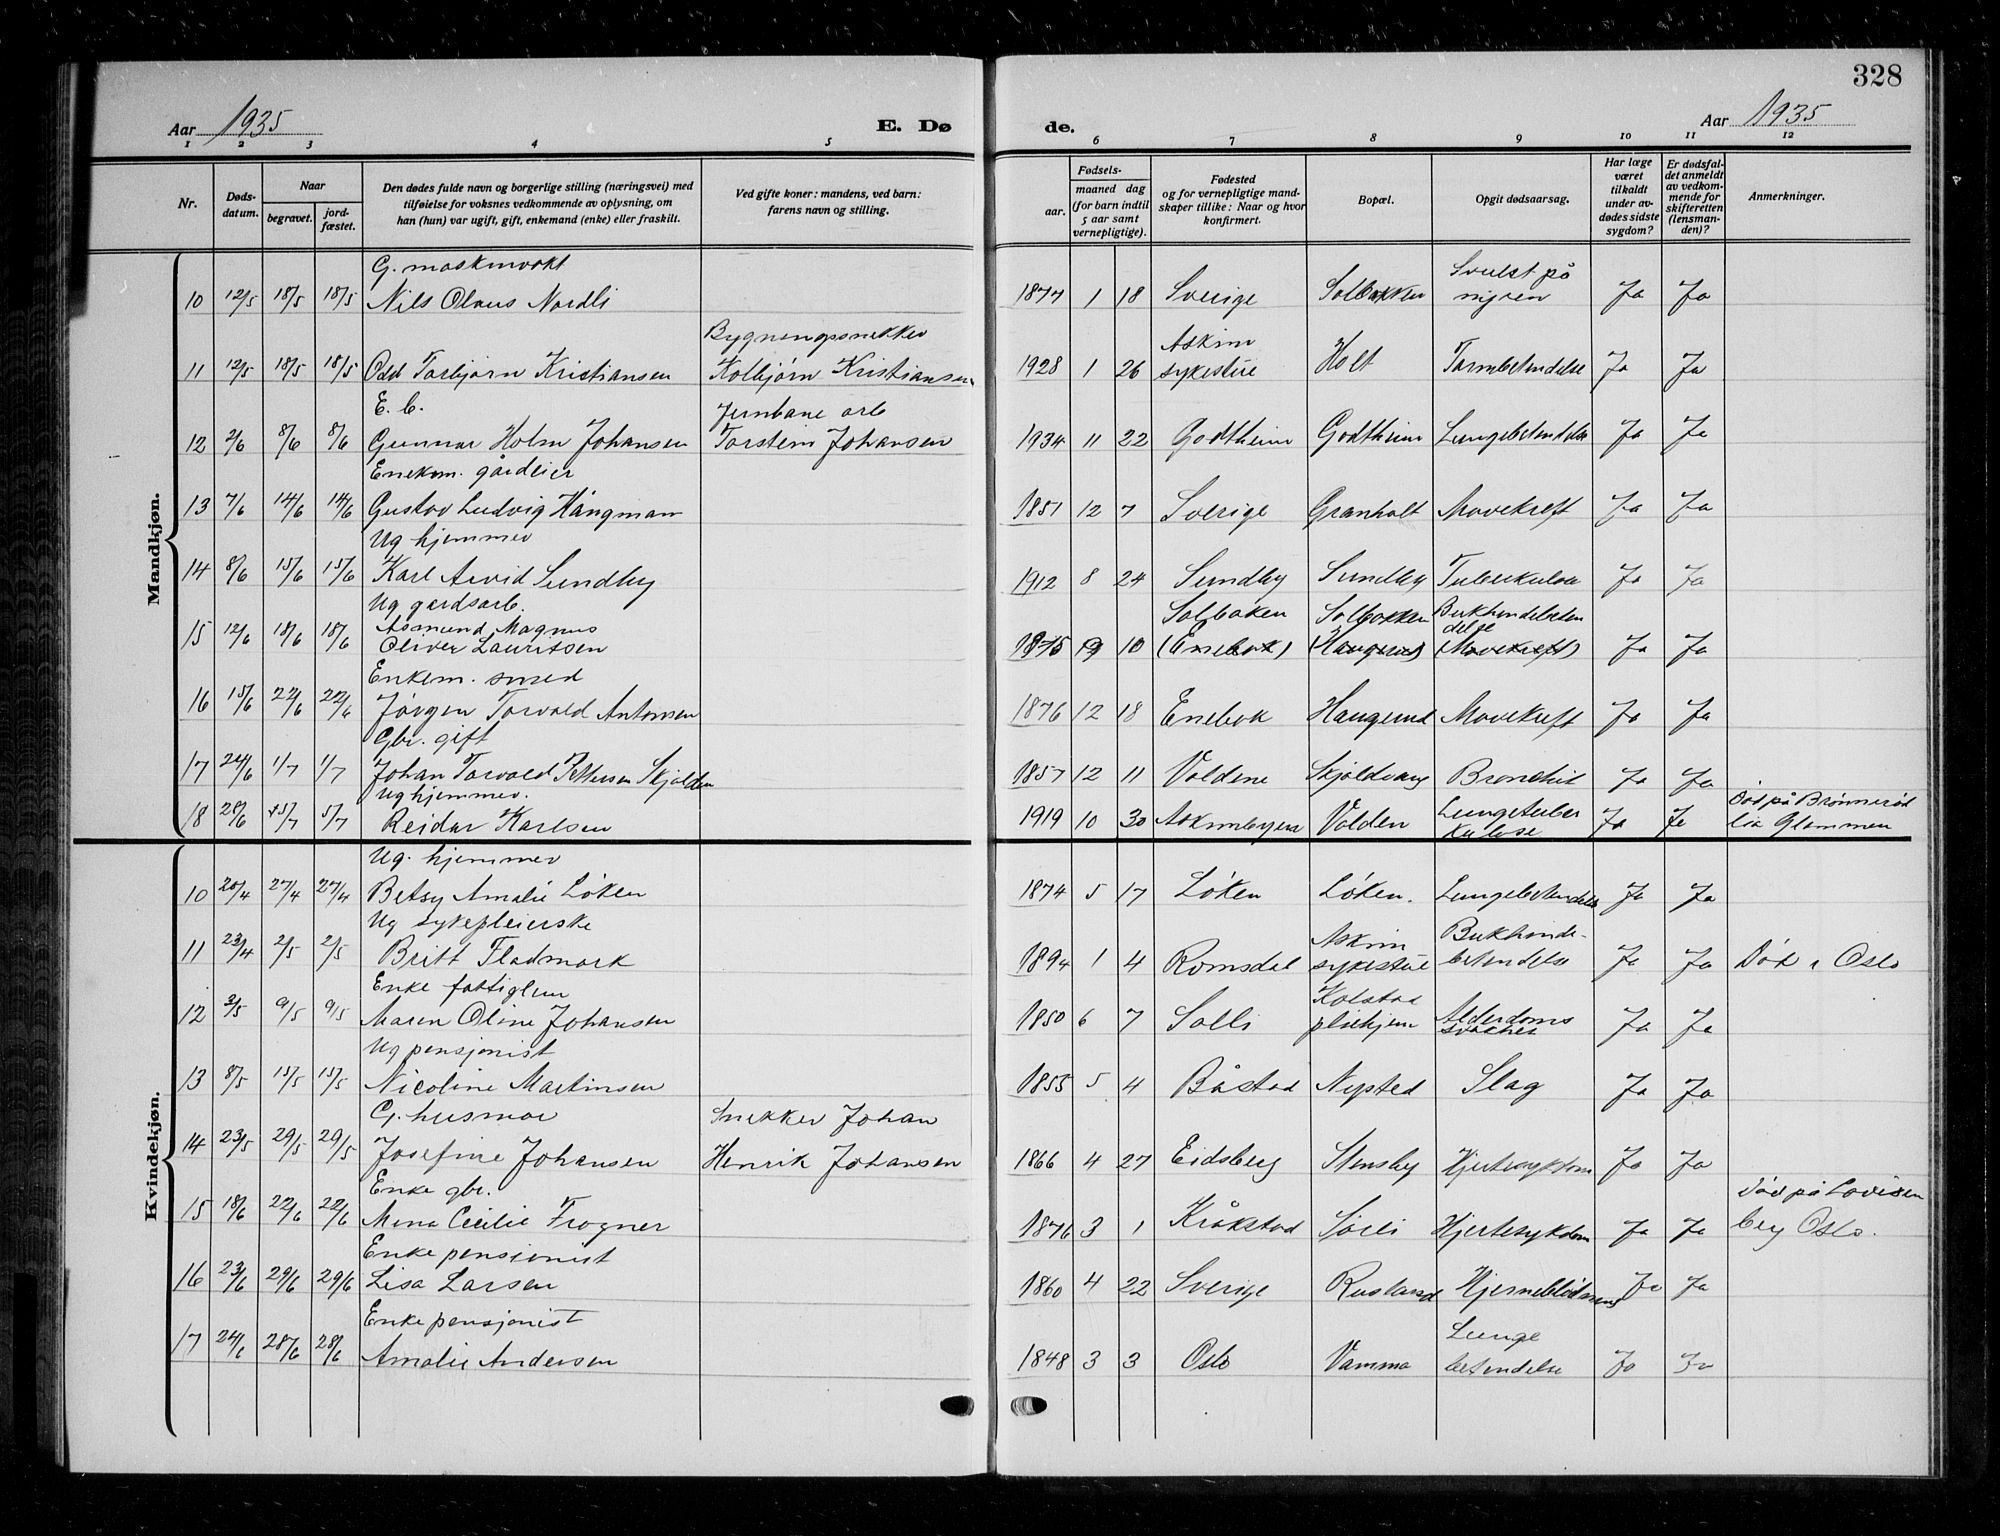 328
Aar 1935
E. Dø
de.
Aar 1935
1 2 3 4 5
6 7 8 9 10 11 12
Nr.
Døds-
datum.
Naar
begravet.
jord-
fæstet.
Den dødes fulde navn og borgerlige stilling (næringsvei) med
tilføielse for voksnes vedkommende av oplysning, om
han (hun) var ugift, gift, enkemand (enke) eller fraskilt.
Ved gifte koner: mandens, ved barn:
farens navn og stilling.
Fødsels-
aar.
maaned dag
(for barn indtil
5 aar samt
vernepligtige).
Fødested
og for vernepligtige mand-
skaper tillike: Naar og hvor
konfirmert.
Bopæl.
Opgit dødsaarsag.
Har læge
været
tilkaldt
under av-
dødes sidste
sygdom?
Er dødsfal-
det anmeldt
av vedkom-
mende for
skifteretten
(lensman-
den)?
Anmerkninger.
Mandkjøn.
G. maskinvakt
Svulst på
10 12/5 18/5 18/5 Nils Olaus Nordli 1877 1 18 Sverige Solbakken nyren Ja Ja
Bygningssnekker
Askim
11 12/5 18/5 18/5 Odd Torbjørn Kristiansen Kolbjørn Kristiansen 1928 1 26 sykestue Holt Tarmbetendelse Ja Ja
E. b. Jernbane arb
12 2/6 8/6 8/6 Gunnar Holm Johansen Torstein Johansen 1934 11 22 Godtheim Godtheim Lungebetendelse Ja Ja
Enkem. gårdeier
13 7/6 14/6 14/6 Gustav Ludvig Hångman 1851 12 7 Sverige Granholt Mavekreft Ja Ja
Ug hjemmev
14 8/6 15/6 15/6 Karl Arvid Sundby 1912 8 24 Sundby Sundby Tuberkulose Ja Ja
Ug gardsarb.
Asmund Magnus Solbaken Solbakken Bukhindebeten
delse
15 12/6 18/6 18/6 Oliver Lauritsen 1915 9 10 (Enebak) (Haugund) (Mavekreft) Ja Ja
Enkem. smed
16 15/6 22/6 22/6 Jörgen Torvald Antonsen 1876 12 18 Enebak Haugund Mavekreft Ja Ja
Gbr. gift
17 24/6 1/7 1/7 Johan Torvald Pettersen Skjolden 1857 12 11 Voldene Skjoldvang Bronchit Ja Ja
Ug hjemmev. Lungetuber Död på Brønnerød
18 28/6 5/7 5/7 Reidar Karlsen 1919 10 30 Askimbyen Volden kulose Ja Ja lia Glommen
Kvindekjøn.
Ug. hjemmev
10 20/4 27/4 27/4 Betsy Amalie Löken 1874 5 17 Löken Löken. Lungebetendelse Ja Ja
Ug sykepleierske Askim Bukhinde-
11 23/4 2/5 2/5 Britt Fladmark 1894 1 4 Romsdal sykestue betendelse Ja Ja Död i Oslo
Enke fattiglem Kolstad
12 3/5 9/5 9/5 Maren Oline Johansen 1850 6 7 Solli pleiehjem Alderdoms Ja Ja
svakhet
Ug pensjonist
13 8/5 15/5 15/5 Nicoline Martinsen 1855 5 4 Båstad Nysted Slag Ja Ja
G. husmor Snekker Johan
14 23/5 29/5 29/5 Josefine Johansen Henrik Johansen 1866 4 27 Eidsberg Stensby Hjertesykdom Ja Ja
Enke gbr. Död på Lovisen
15 18/6 22/6 22/6 Mina Cecilie Frogner 1876 3 1 Kråkstad Sørli Hjertesykdom Ja Ja berg Oslo.
Enke pensjonist
16 23/6 29/6 29/6 Lisa Larsen 1860 4 22 Sverige Rusland Hjerneblødning Ja Ja
Enke pensjonist Lunge
17 24/6 28/6 28/6 Amalie Andersen 1848 3 3 Oslo Vamma betendelse Ja Ja